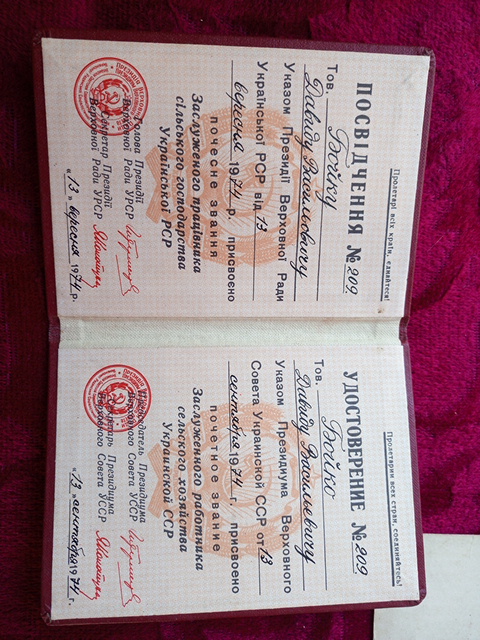 Пролетарі всіх країн, єднайтеся!
ПОСВІДЧЕННЯ № 209.
Тов. Бойку
Давиду Васильовичу
Указом Президії Верховної Ради
Української РСР від 13
вересня 1974 р. присвоєно
почесне звання
Заслуженого працівника
сільського господарства
Української РСР
Голова Президії
Верховної Ради УРСР
Секретар Президії
Верховної Ради УРСР
„13" вересня 1974 р.
Пролетарии всех стран, соединяйтесь!
УДОСТОВЕРЕНИЕ № 209
Тов. Бойко
Давиду Васильевичу
Указом Президиума Верховного
Совета Украинской ССР от 13
сентября 1974 г. присвоено
почетное звание
Заслуженного работника
сельского хозяйства
Украинской ССР
Председатель Президиума
Верховного Совета УССР
Секретарь Президиума
Верховного Совета УССР
„13" сентября 1974 г.